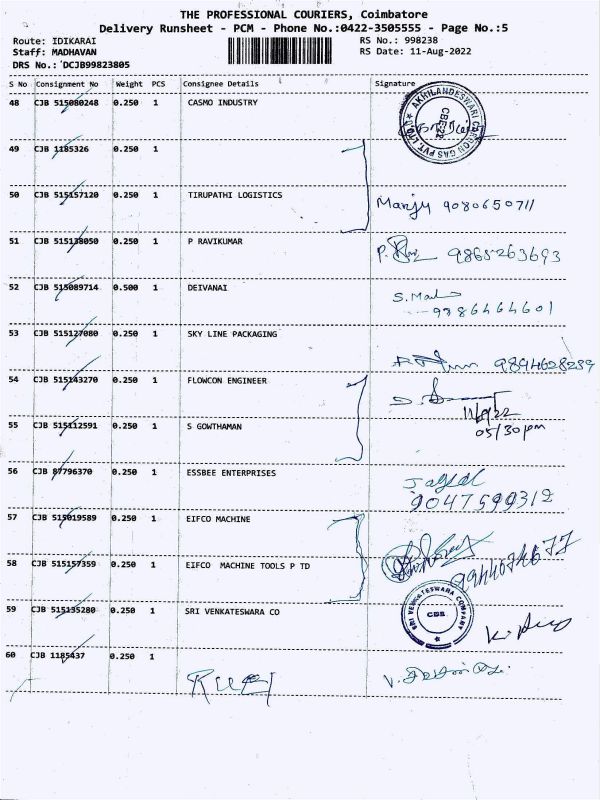 THE PROFESSIONAL COURIERS, Coimbatore
Delivery Runsheet - PCM - Phone No.:0422-3505555 - Page No.:5
Route: IDIKARAI RS No.: 998238
Staff: MADHAVAN RS Date: 11-Aug-2022
DRS No.: DCJB99823805
S No Consignment No Weight PCS Consignee Details Signature
48 CJB 515080248 0.250 1 CASMO INDUSTRY
AKHILANDESWARI CARBON GAS PVT. LTD.
CBE-22
49 CJB 1185326 0.250 1
50 CJB 515157120 0.250 1 TIRUPATHI LOGISTICS Manju 9080650711
51 CJB 515138050 0.250 1 P RAVIKUMAR 9865263693
52 CJB 515089714 0.500 1 DEIVANAI
9386464601
53 CJB 515127080 0.250 1 SKY LINE PACKAGING 9894628239
54 CJB 515143270 0.250 1 FLOWCON ENGINEER
55 CJB 515112591 0.250 1 S GOWTHAMAN 05/30pm
56 CJB 87796370 0.250 1 ESSBEE ENTERPRISES
9047599312
57 CJB 515019589 0.250 1 EIFCO MACHINE
58 CJB 515157359 0.250 1 EIFCO MACHINE TOOLS P TD
59 CJB 515135280 0.250 1 SRI VENKATESWARA CO
SRI VENKATESWARA COMPANY
CBE
60 CJB 1185437 0.250 1